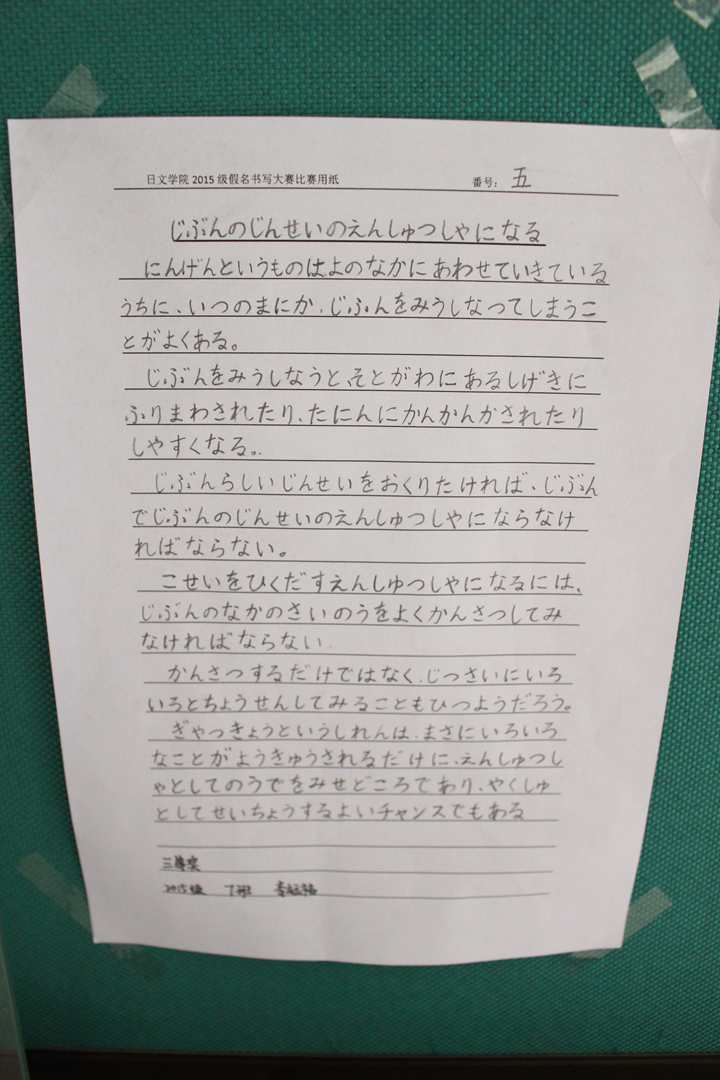 日文学院 2015 级假名书写大赛比赛用纸 番号： 五
じぶんのじんせいのえんしゅつしゃになる
にんげんというものはよのなかにあわせていきている
うちに、いつのまにか、じぶんをみうしなってしまうこ
とがよくある。
じぶんをみうしなうと、そとがわにあるしげきに
ふりまわされたり、たにんにかんかんかされたり
しやすくなる。
じぶんらしいじんせいをおくりたければ、じぶん
でじぶんのじんせいのえんしゅつしゃにならなけ
ればならない。
こせいをひくだすえんしゅつしゃになるには、
じぶんのなかのさいのうをよくかんさつしてみ
なければならない.
かんさつするだけではなく、じっさいにいろ
いろとちょうせんしてみることもひつようだろう。
ぎゃっきょうというしれんは、まさにいろいろ
なことがようきゅうされるだけに、えんしゅつし
ゃとしてのうでをみせどころであり、やくしゅ
としてせいちょうするよいチャンスでもある
三等奖
2015级 丁班